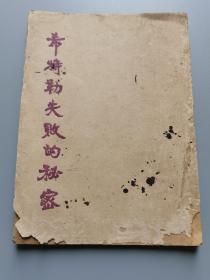 希特勒失敗的祕密